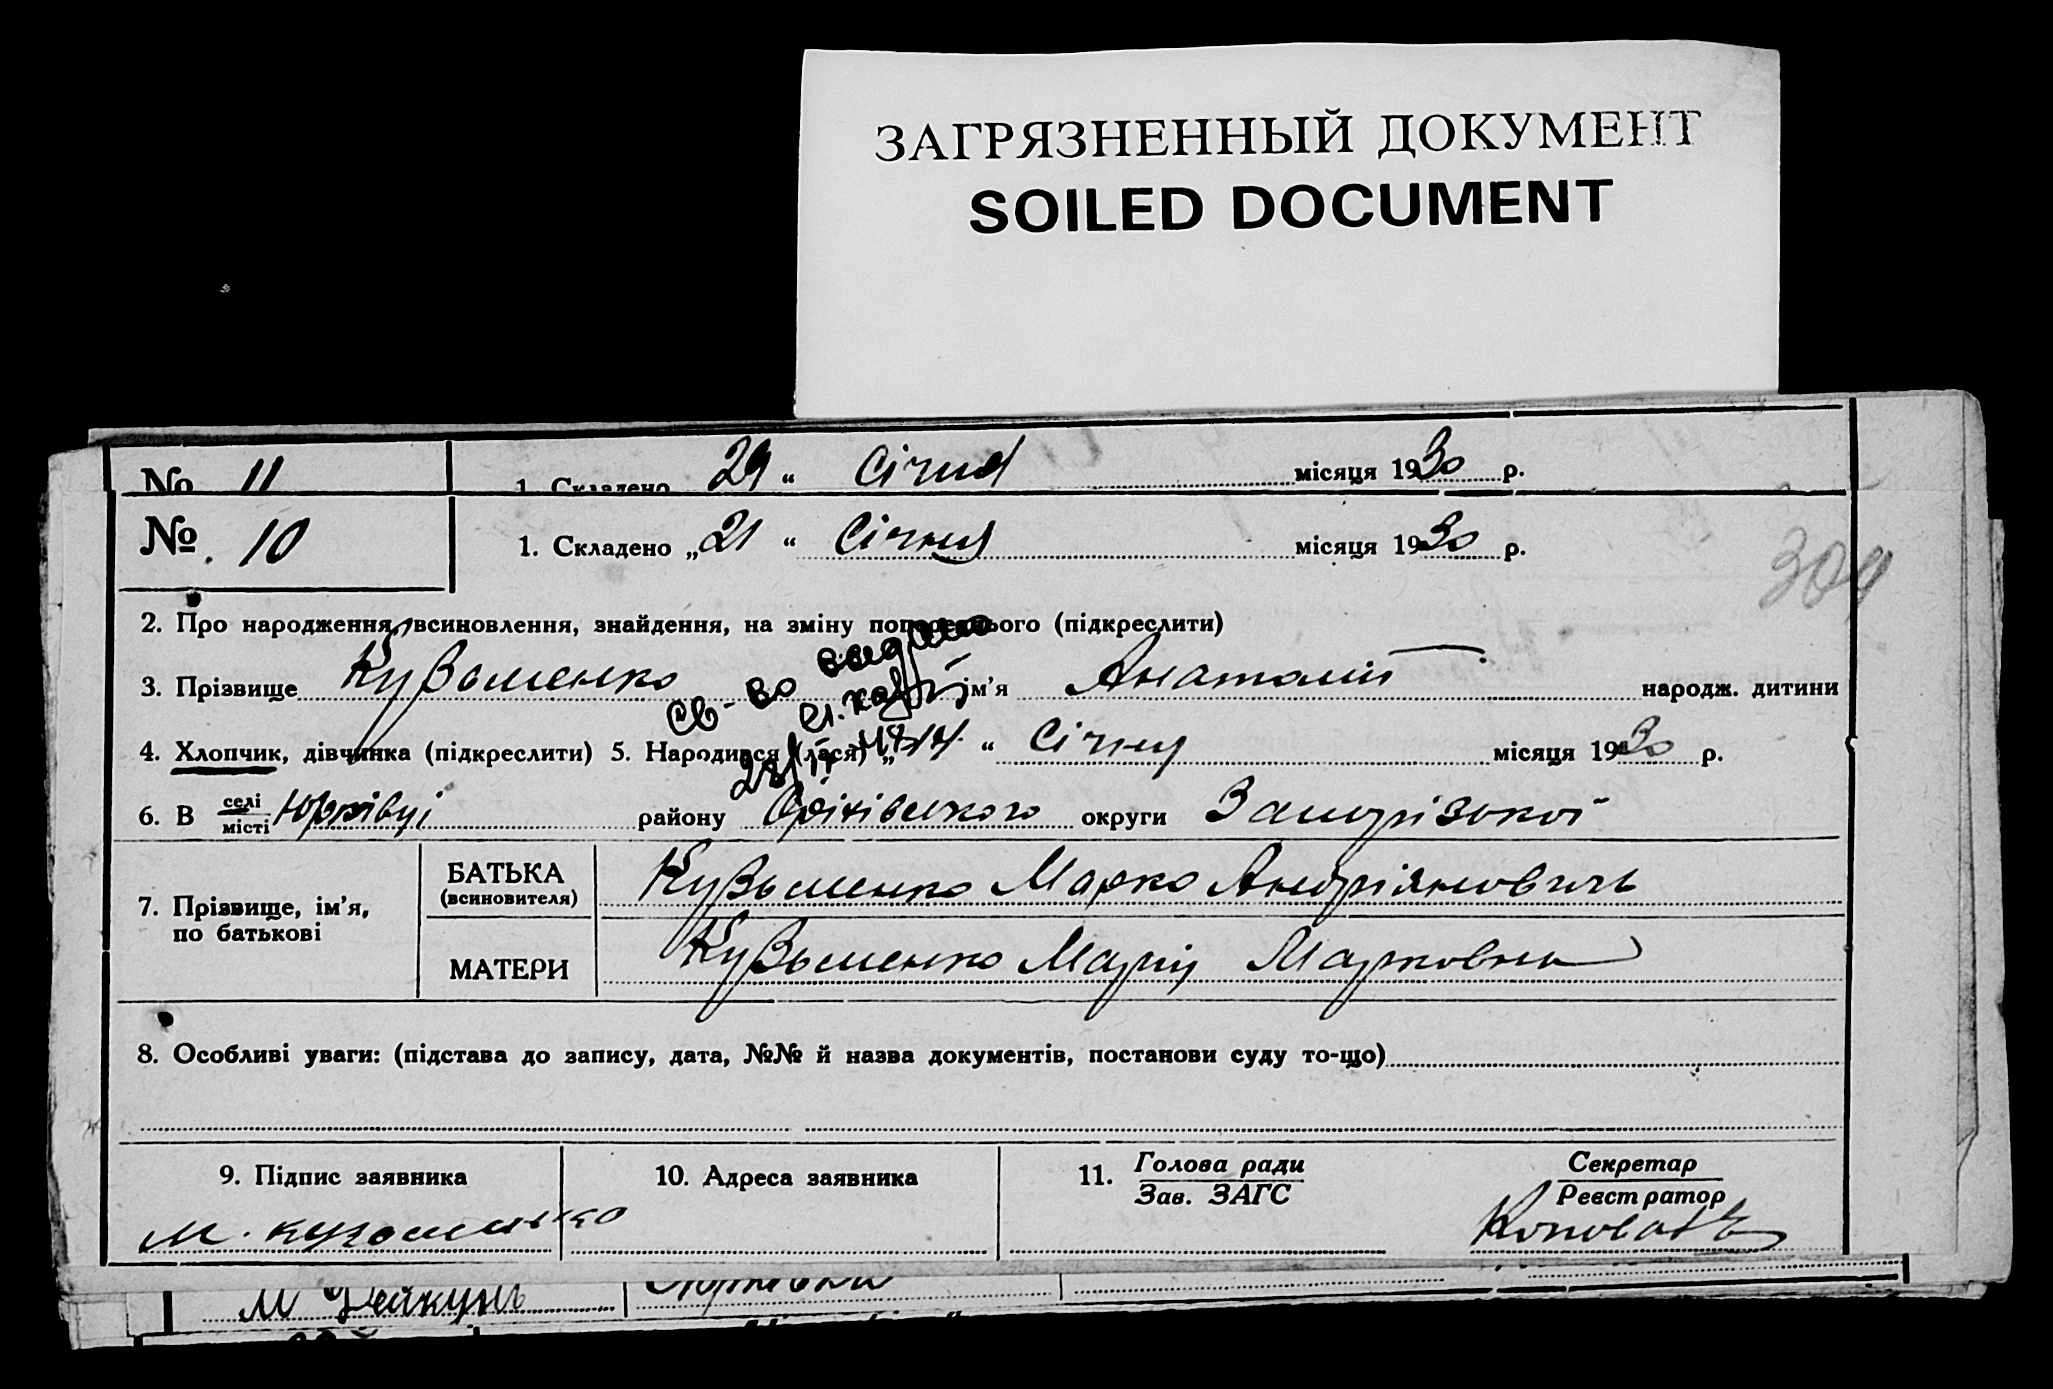 ЗАГРЯЗНЕННЫЙ ДОКУМЕНТ
SOILED DOCUMENT
№ 11 1. Складено 29 “ Січня місяця 1930 р.
№ 10 1. Складено „21 “ Січня місяця 1930 р.
309
2. Про народження, всиновлення, знайдення, на зміну попереднього (підкреслити)
3. Прізвище Кузьменко ім’я Анатолій народж. дитини
св-во выдано
4. Хлопчик, дівчинка (підкреслити) 5. Народився (лася) „14 “ Січня місяця 1930 р.
6. В селі місті Юрківці району Оріхівського округи Запорізької
7. Прізвище, ім’я, по батькові
БАТЬКА (всиновителя) Кузьменко Марко Андріянович
МАТЕРИ Кузьменко Марія Марковна
8. Особливі уваги: (підстава до запису, дата, №№ й назва документів, постанови суду то-що)
9. Підпис заявника 10. Адреса заявника 11. Голова ради Секретар
Зав. ЗАГС Реєстратор
М. Кузьменко